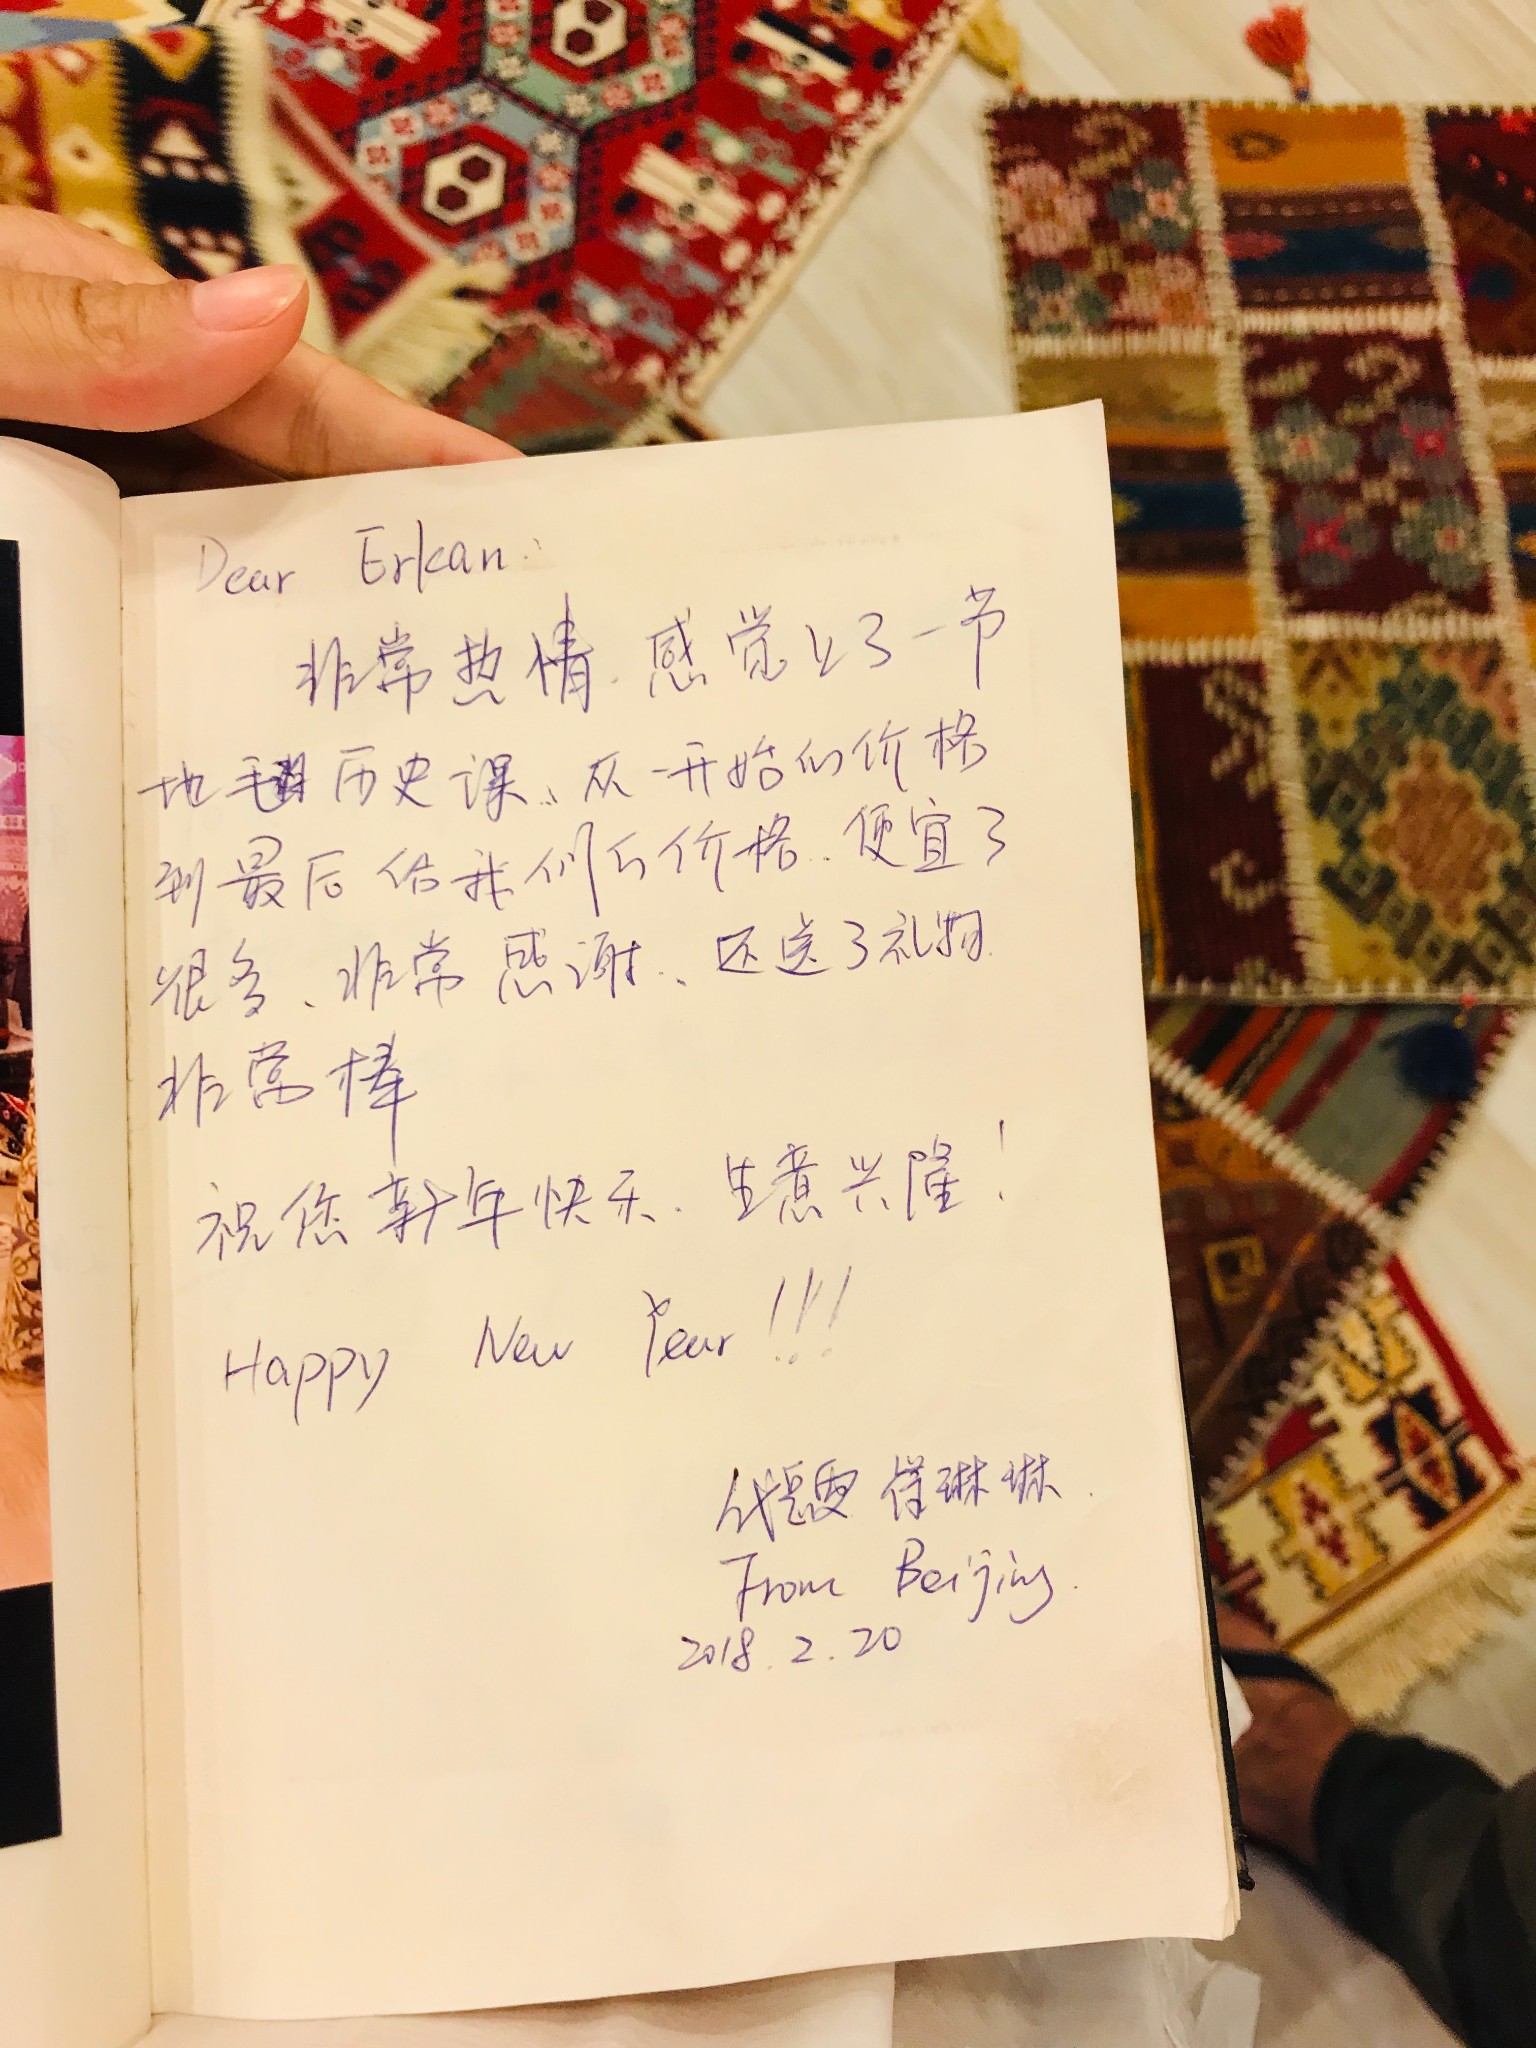 Dear Erkan:
非常热情.感觉上了一节
地毯历史课、从一开始的价格
到最后给我们的价格.便宜了
很多、非常感谢、还送了礼物.
非常棒
祝您新年快乐.生意兴隆!
Happy New Year!!!
琳琳.
From Beijing.
2018.2.20